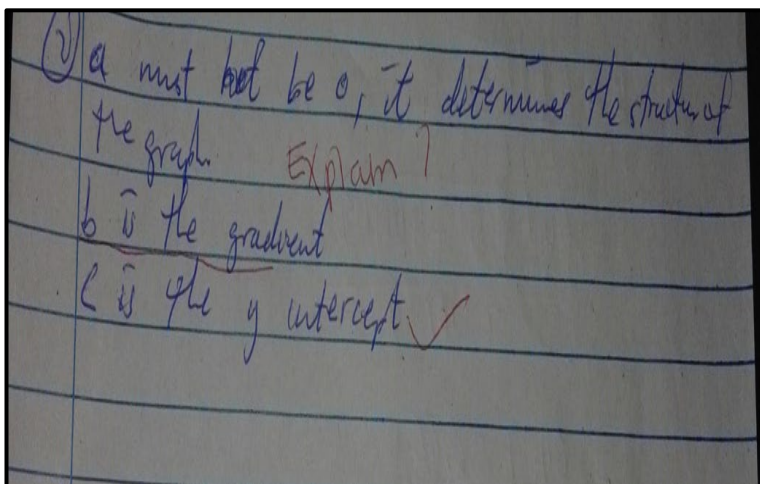 ② a must not be 0, it determines the structure of
the graph. Explain ?
b is the gradient
c is the y intercept ✓